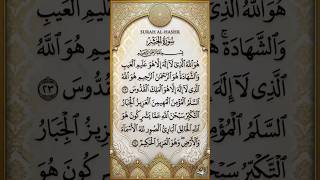 SURAH AL-HASHR
سُورَةُ الْحَشْرِ
هُوَ اللَّهُ الَّذِي لَا إِلَٰهَ إِلَّا هُوَ عَلِيمُ الْغَيْبِ
وَالشَّهَادَةِ هُوَ الرَّحْمَٰنُ الرَّحِيمُ هُوَ اللَّهُ
الَّذِي لَا إِلَٰهَ إِلَّا هُوَ الْمَلِكُ الْقُدُّوسُ
السَّلَمُ الْمُؤْمِنُ الْمُهَيْمِنُ الْعَزِيزُ الْجَبَّارُ
الْمُتَكَبِّرُ سُبْحَنَ اللَّهِ عَمَّا يُشْرِكُونَ هُوَ
اللَّهُ الْخَالِقُ الْبَارِئُ الْمُصَوِّرُ لَهُ الْأَسْمَاءُ
وَالْأَرْضِ وَهُوَ الْعَزِيزُ الْحَكِيمُ